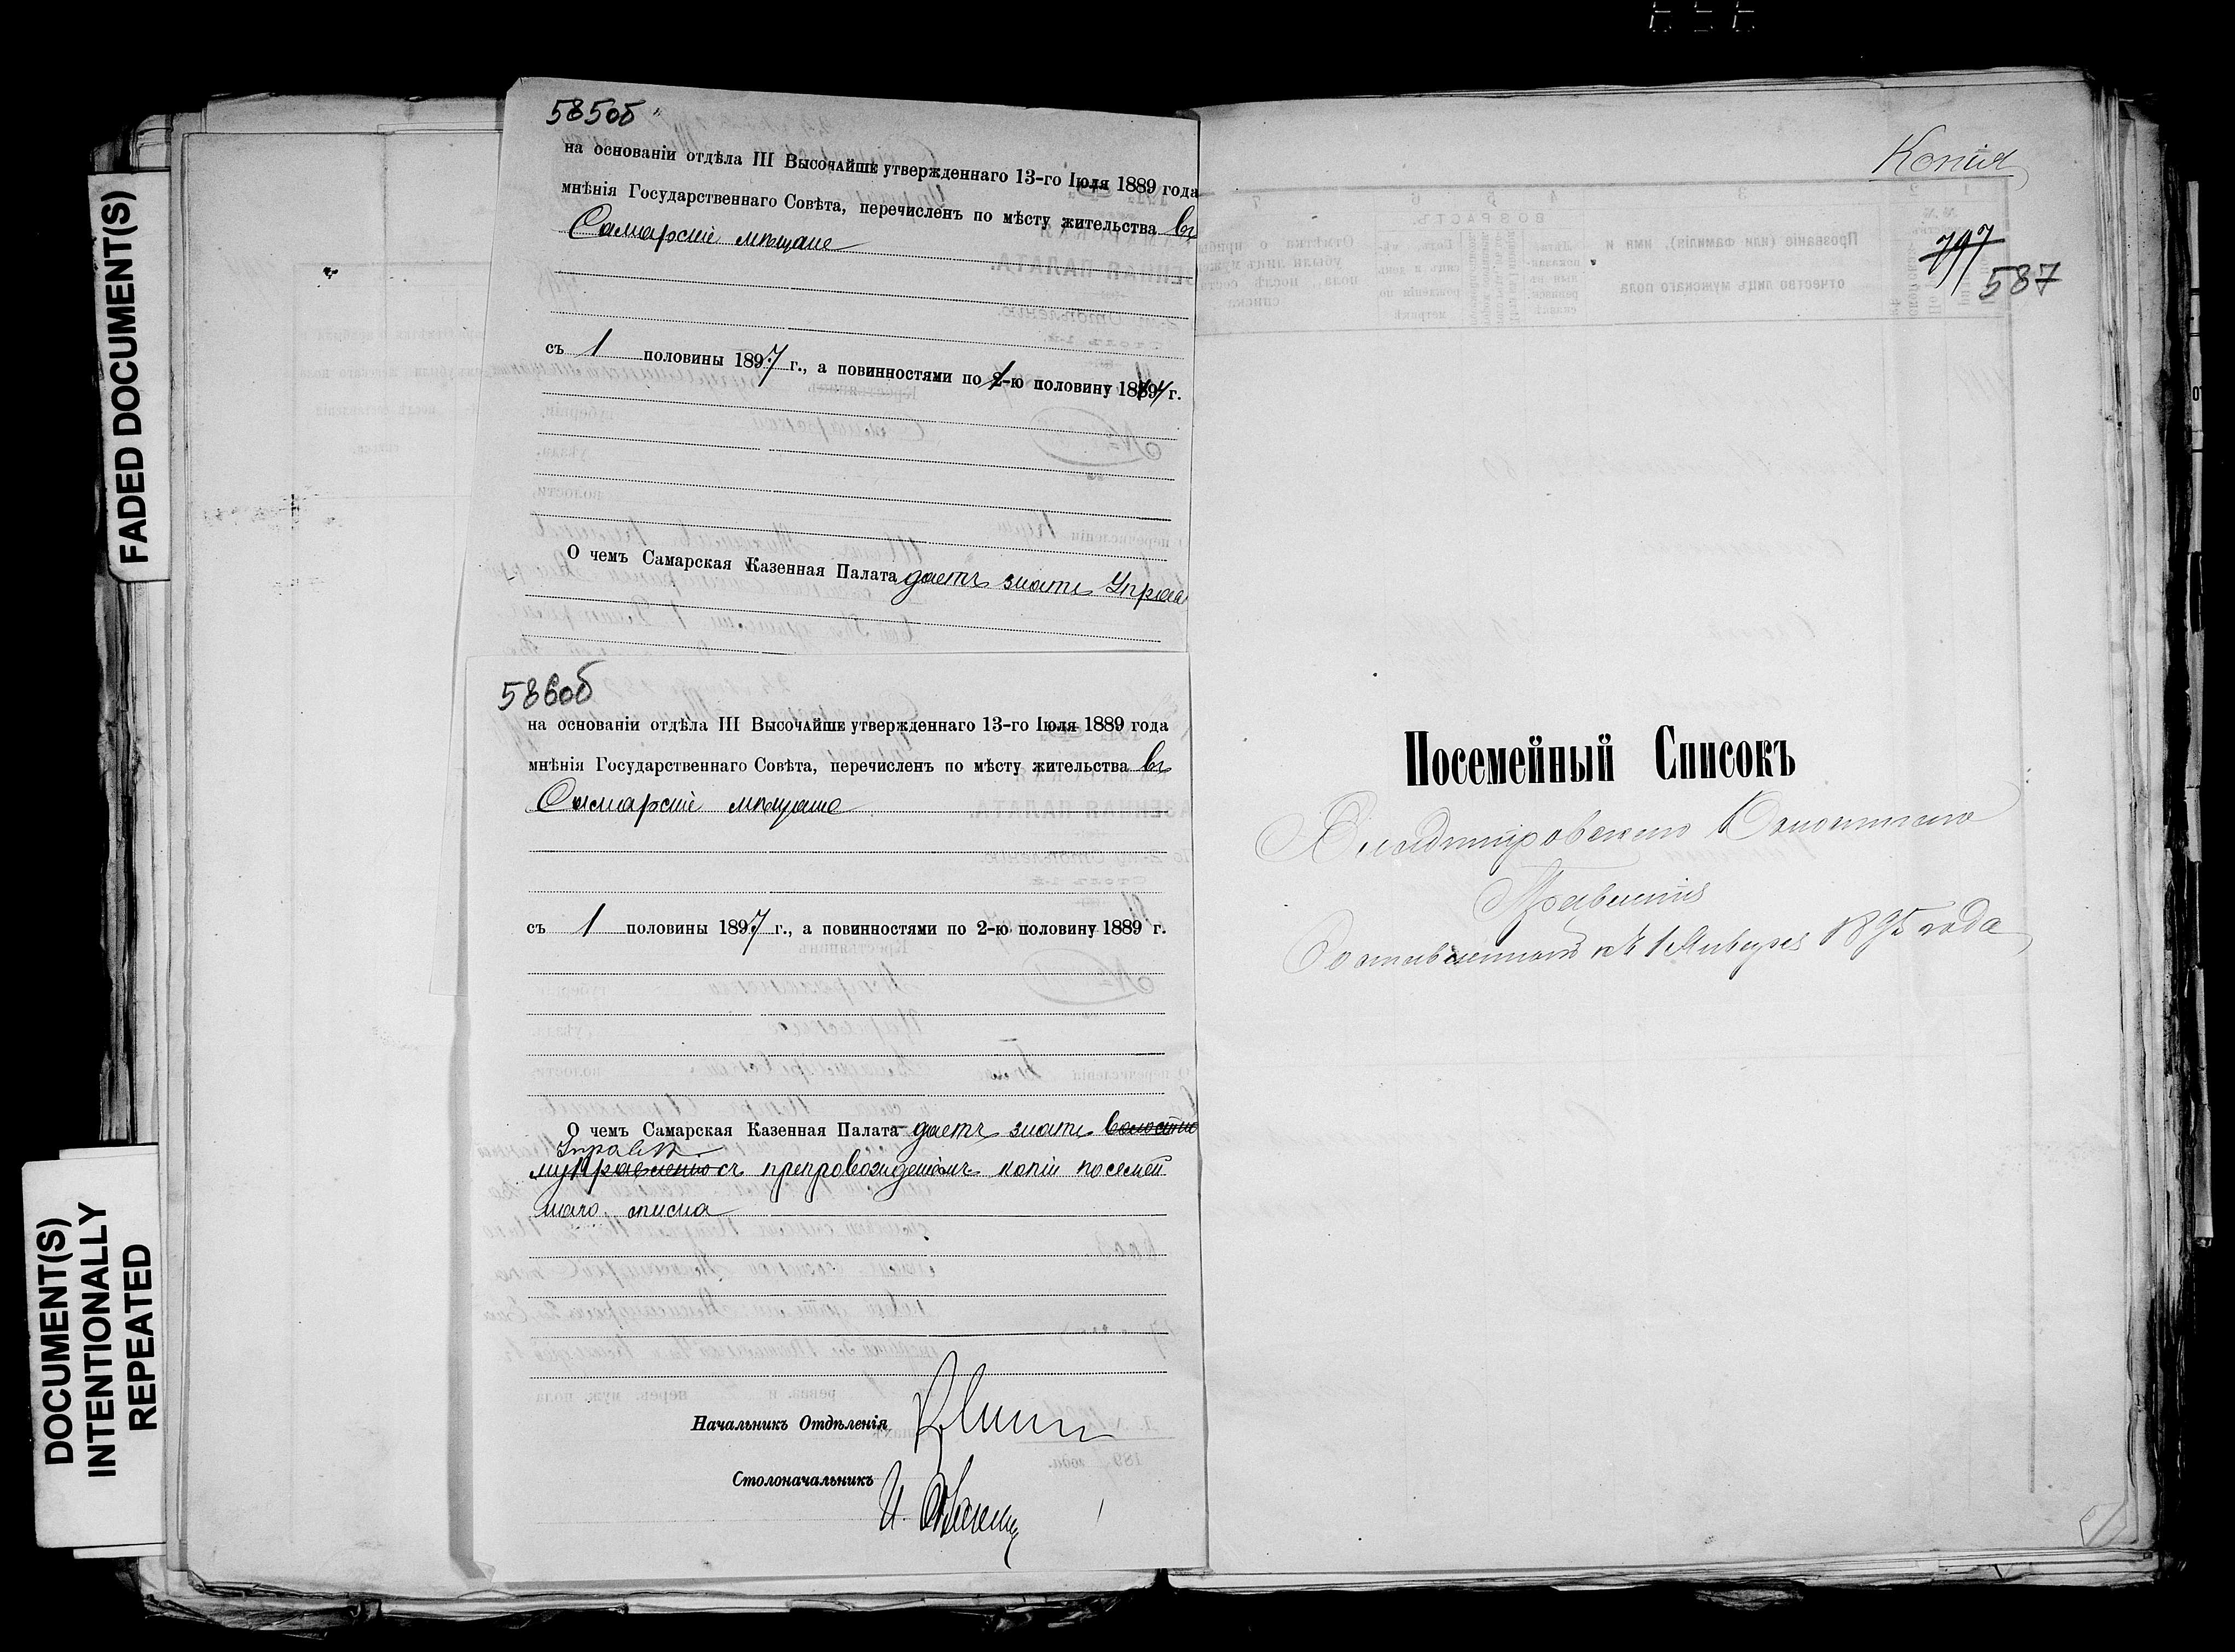 FADED DOCUMENT(S)
DOCUMENT(S)
INTENTIONALLY
REPEATED
585об
на основаніи отдѣла III Высочайше утвержденнаго 13-го Іюля 1889 года
мнѣнія Государственнаго Совѣта, перечисленъ по мѣсту жительства въ
Самарскіе мѣщане
съ 1 половины 1897 г., а повинностями по половину г.
О чемъ Самарская Казенная Палата даетъ знать Управѣ
586об
на основаніи отдѣла III Высочайше утвержденнаго 13-го Іюля 1889 года
мнѣнія Государственнаго Совѣта, перечисленъ по мѣсту жительства въ
Самарскіе мѣщане
съ 1 половины 1897 г., а повинностями по 2-ю половину 1889 г.
О чемъ Самарская Казенная Палата даетъ знать волостно
Управѣ
му правленію съ препровожденіемъ копіи посемей
наго списка
Начальникъ Отдѣленія
Столоначальникъ И.
Копія
797
587
Посемейный Списокъ
Владимировскаго Волостнаго
Правленія
Составленный къ 1 Января 1895 года